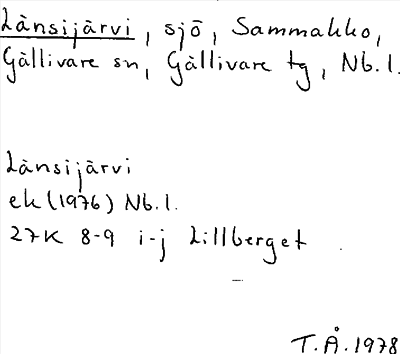 Länsijärvi, sjö, Sammakko,
Gällivare sn, Gällivare tg, Nb.l.
Länsijärvi
ek (1976) Nb.l.
27K 8-9 i-j Lillberget
T.Å. 1978